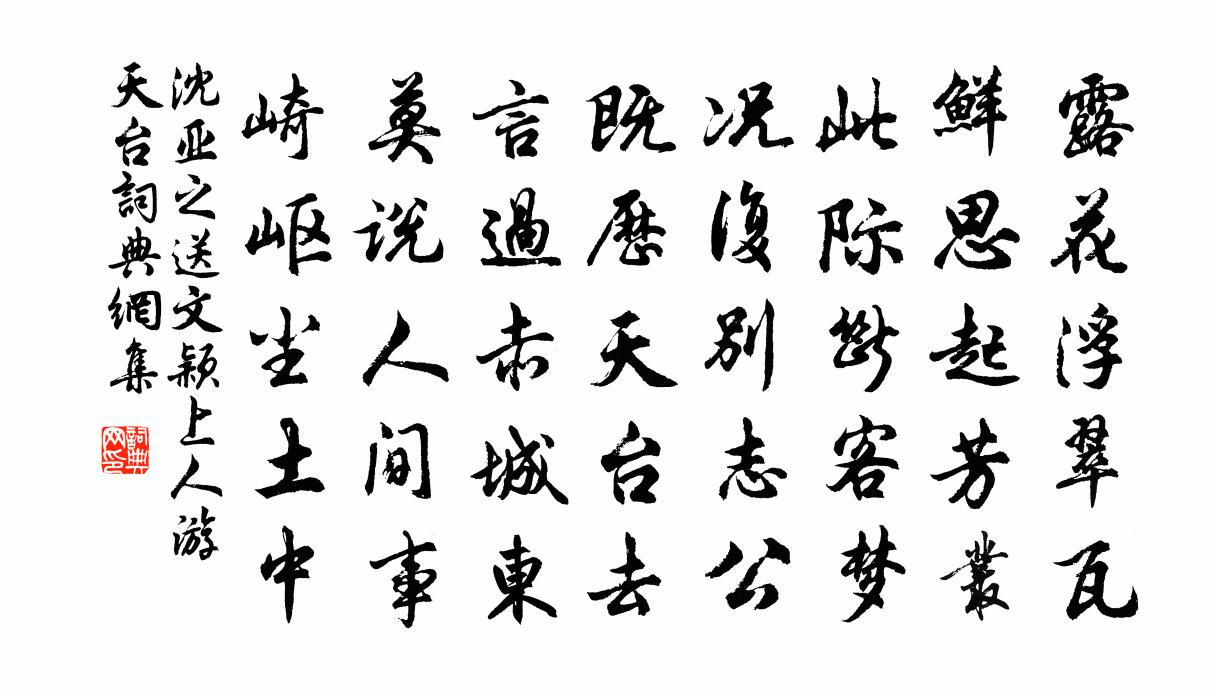 露花浮翠瓦
鲜思起芳叢
此际断客梦
况復别志公
既歷天台去
言過赤城東
莫说人间事
崎岖尘土中
沈亚之送文颖上人游
天台詞典網集
詞典
网印